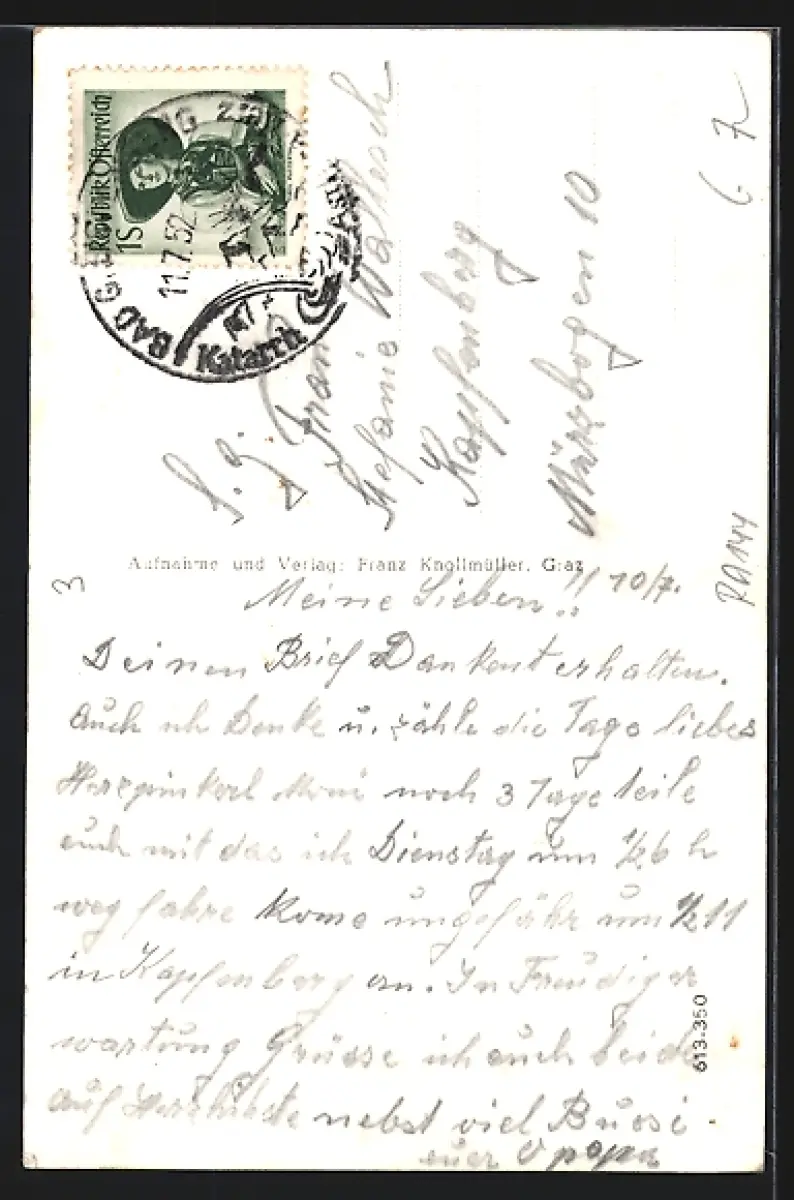 Republik Österreich
1S
BAD G
11.7.52
Katarrh
S. g. Frau
Stefanie
Kapfenberg
Mürzbogen 10
67
RA144
3
Aufnahme und Verlag: Franz Knollmüller, Graz
Meine Lieben!! 10/7.
Deinen Brief Dankent erhalten.
Auch ich Denke u. zähle die Tage liebes
Herzpinkerl Moni noch 3 Tage teile
euch mit das ich Dienstag um 1/26 h
weg fahre kome ungefähr um 1/211
in Kapfenberg an. In Freudiger
wartung Grüsse ich euch beide
auf Herzlichste nebst viel Bussi.
euer Opapa
613-350